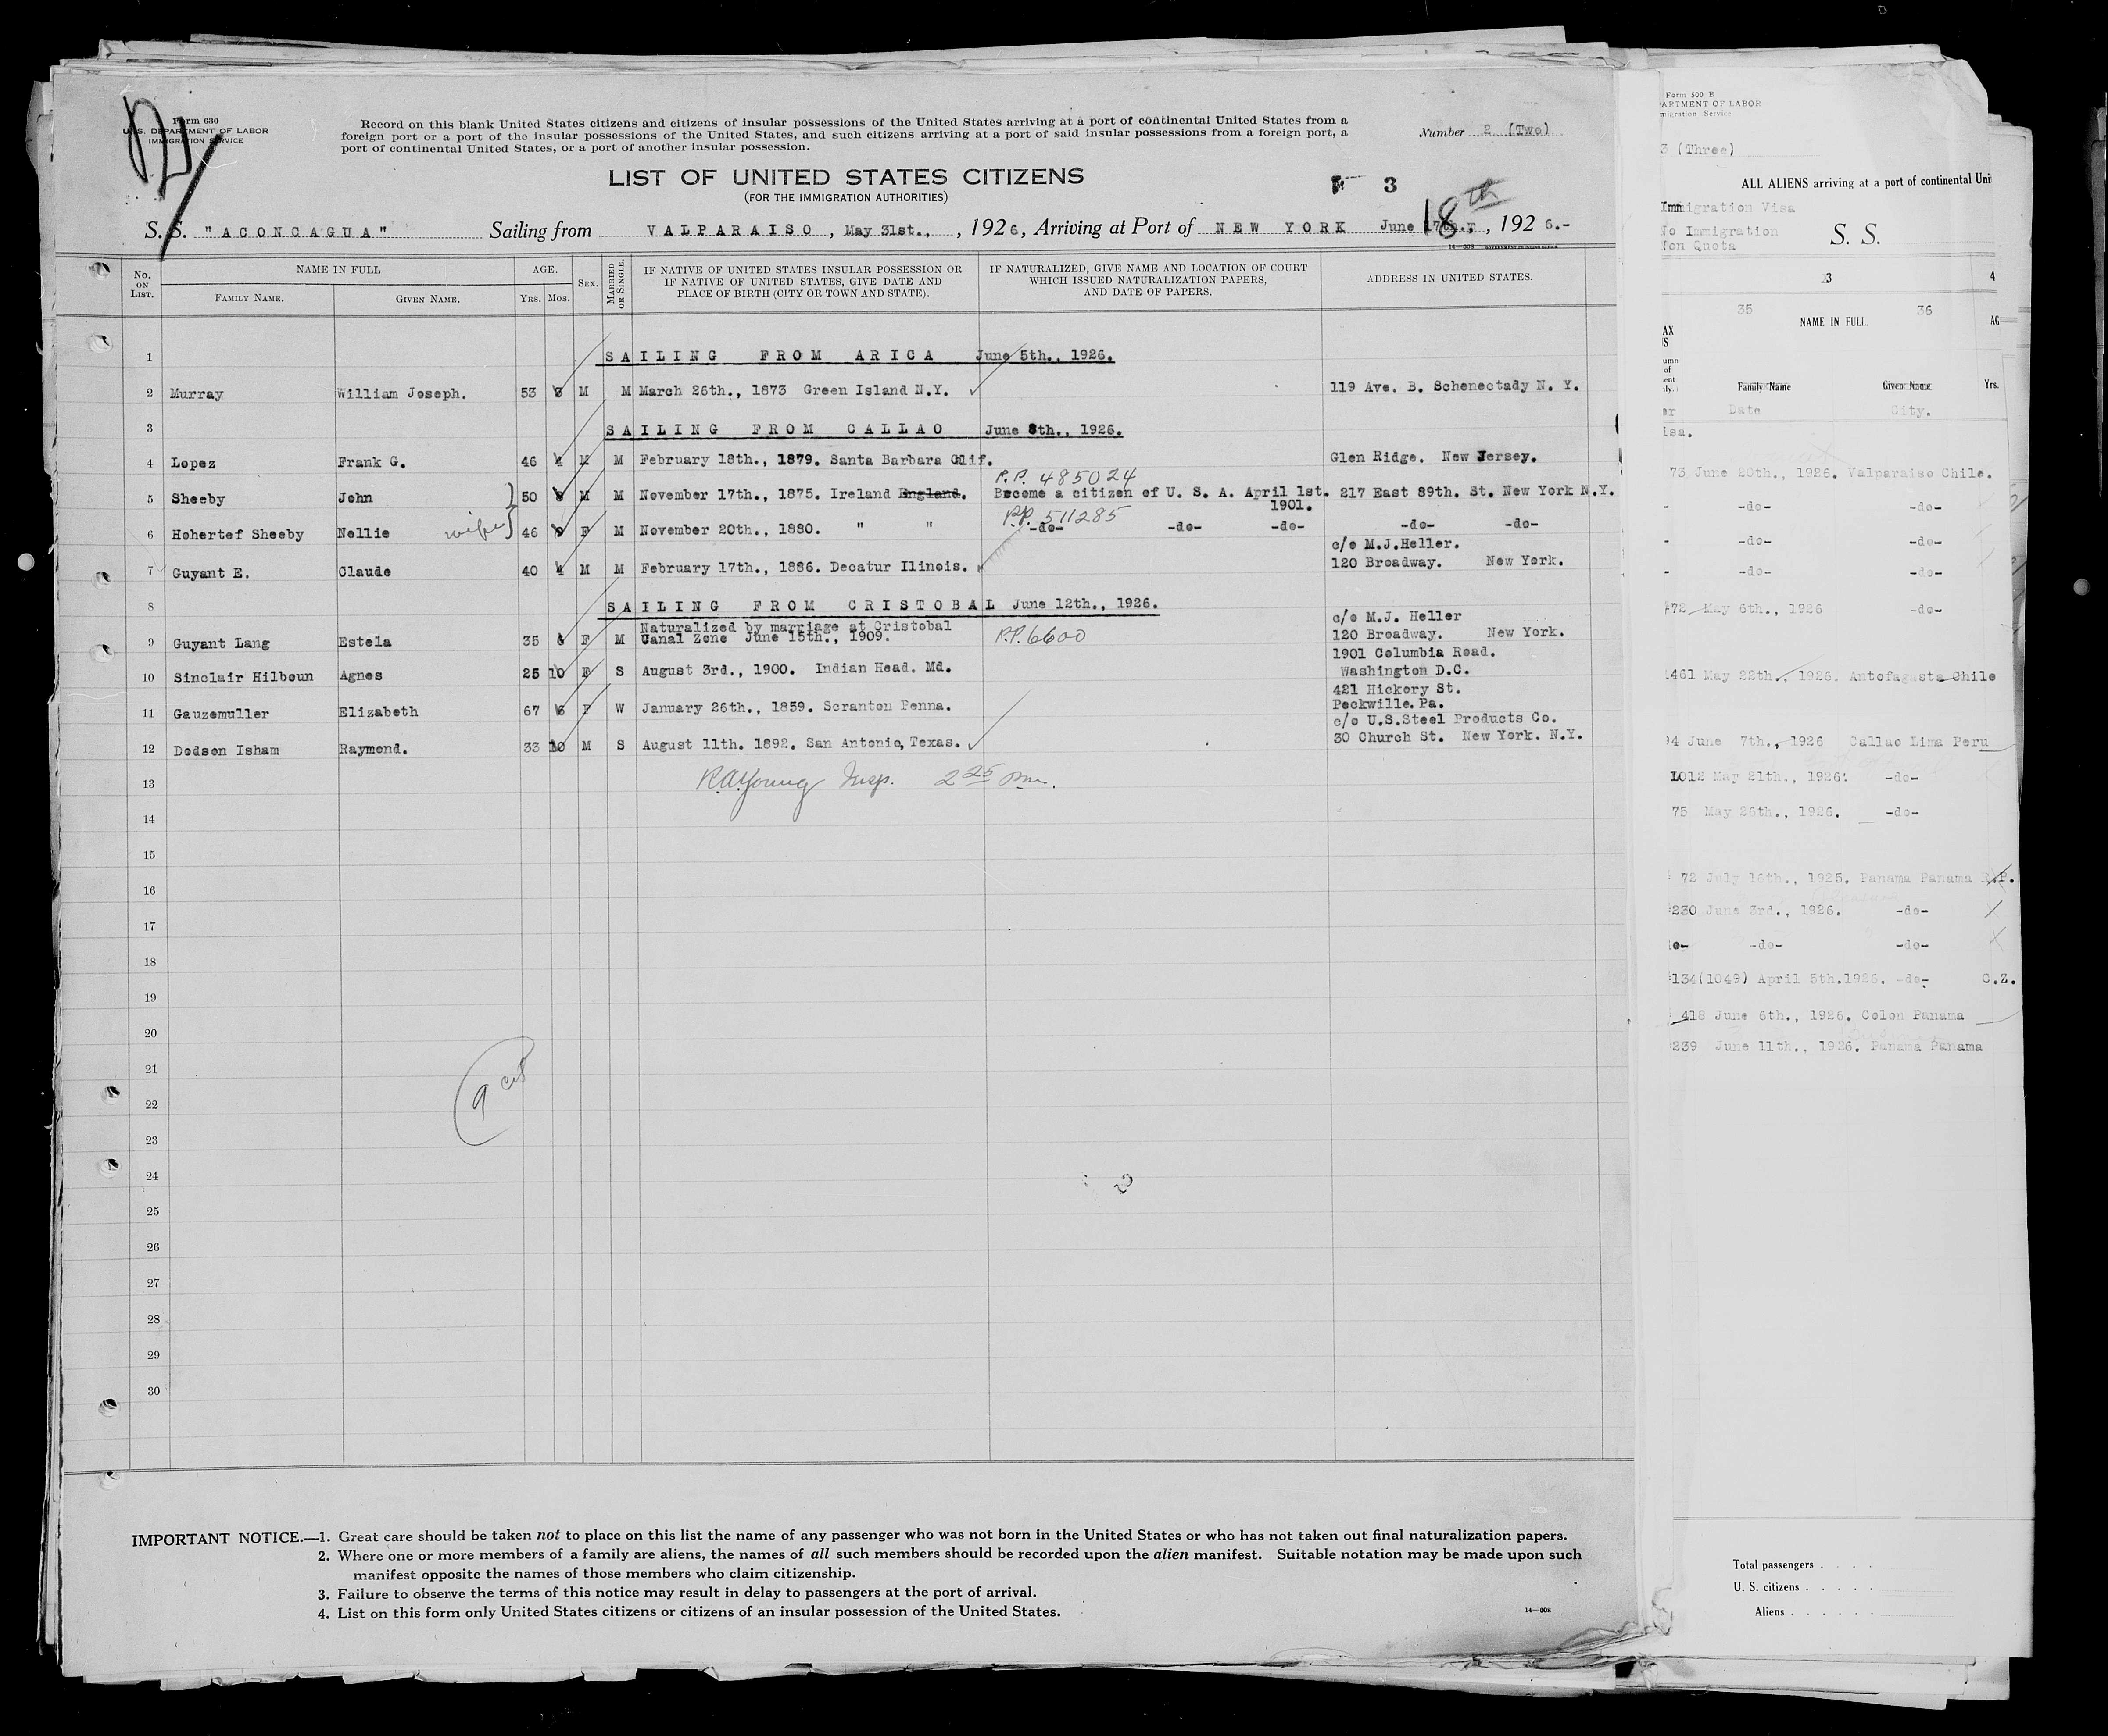 Form 630
U. S. DEPARTMENT OF LABOR
IMMIGRATION SERVICE
Record on this blank United States citizens and citizens of insular possessions of the United States arriving at a port of continental United States from a
foreign port or a port of the insular possessions of the United States, and such citizens arriving at a port of said insular possessions from a foreign port, a
port of continental United States, or a port of another insular possession.
Number 2 (Two)
LIST OF UNITED STATES CITIZENS
(FOR THE IMMIGRATION AUTHORITIES)
3
S. S. "ACONCAGUA" Sailing from VALPARAISO, May 31st., , 1926, Arriving at Port of NEW YORK June 18th , 1926.-
No. ON LIST. NAME IN FULL AGE. SEX. MARRIED OR SINGLE. IF NATIVE OF UNITED STATES INSULAR POSSESSION OR IF NATIVE OF UNITED STATES, GIVE DATE AND PLACE OF BIRTH (CITY OR TOWN AND STATE). IF NATURALIZED, GIVE NAME AND LOCATION OF COURT WHICH ISSUED NATURALIZATION PAPERS, AND DATE OF PAPERS. ADDRESS IN UNITED STATES.
FAMILY NAME. GIVEN NAME. YRS. MOS.
1 SAILING FROM ARICA June 5th., 1926.
2 Murray William Joseph. 53 M M March 26th., 1873 Green Island N.Y. 119 Ave. B. Schenectady N. Y.
3 SAILING FROM CALLAO June 8th., 1926.
4 Lopez Frank G. 46 4 M M February 18th., 1879. Santa Barbara Clif. Glen Ridge. New Jersey.
P.P. 485024
5 Sheeby John 50 M M November 17th., 1875. Ireland England. Become a citizen of U. S. A. April 1st. 217 East 89th. St. New York N.Y.
1901.
P.P. 511285
6 Hohertef Sheeby Nellie wife 46 F M November 20th., 1880. " " -do- -do- -do- -do- -do-
c/o M.J.Heller.
7 Guyant E. Claude 40 4 M M February 17th., 1886. Decatur Ilinois. 120 Broadway. New York.
8 SAILING FROM CRISTOBAL June 12th., 1926.
Naturalized by marriage at Cristobal c/o M.J. Heller
9 Guyant Lang Estela 35 6 F M Canal Zone June 15th., 1909. P.P. 6600 120 Broadway. New York.
1901 Columbia Road.
10 Sinclair Hilboun Agnes 25 10 F S August 3rd., 1900. Indian Head. Md. Washington D.C.
421 Hickory St.
11 Gauzemuller Elizabeth 67 F W January 26th., 1859. Scranton Penna. Peckville. Pa.
c/o U.S.Steel Products Co.
12 Dodson Isham Raymond. 33 10 M S August 11th. 1892. San Antonio, Texas. 30 Church St. New York. N.Y.
13 R.A. Young Insp. 2 25 pm.
14
15
16
17
18
19
20
21
22
9 cit
23
24
25
26
27
28
29
30
IMPORTANT NOTICE.—1. Great care should be taken not to place on this list the name of any passenger who was not born in the United States or who has not taken out final naturalization papers.
2. Where one or more members of a family are aliens, the names of all such members should be recorded upon the alien manifest. Suitable notation may be made upon such
manifest opposite the names of those members who claim citizenship.
3. Failure to observe the terms of this notice may result in delay to passengers at the port of arrival.
4. List on this form only United States citizens or citizens of an insular possession of the United States.
14—608
Form 500 B
ARTMENT OF LABOR
migration Service
3 (Three)
ALL ALIENS arriving at a port of continental Uni
Immigration Visa
No Immigration
Non Quota
S. S.
3 4
35 36
NAME IN FULL. AG
Family Name Given Name Yrs.
Date City.
isa.
73 June 20th., 1926. Valparaiso Chile.
- -do- -do-
- -do- -do-
- -do- -do-
72 May 6th., 1926 -do-
461 May 22th., 1926. Antofagasta Chile
94 June 7th., 1926 Callao Lima Peru
1012 May 21th., 1926. -do-
75 May 26th., 1926. -do-
72 July 16th., 1925. Panama Panama R.P.
230 June 3rd., 1926. -do-
-do- -do-
134(1049) April 5th.1926. -do- C.Z.
418 June 6th., 1926. Colon Panama
239 June 11th., 1926. Panama Panama
Total passengers . . . .
U. S. citizens . . . . .
Aliens . . . . . .